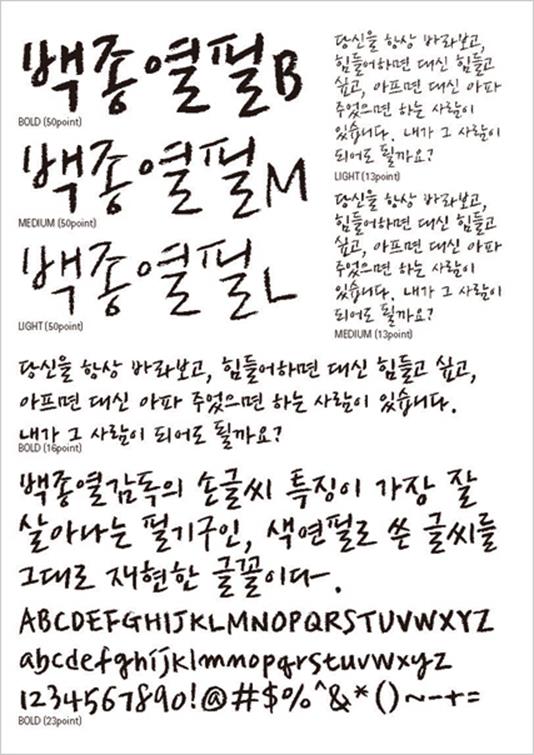 백종열필B
BOLD (50point)
백종열필M
MEDIUM (50point)
백종열필L
LIGHT (50point)
당신을 항상 바라보고,
힘들어하면 대신 힘들고
싶고, 아프면 대신 아파
주었으면 하는 사람이
있습니다. 내가 그 사람이
되어도 될까요?
LIGHT (13point)
당신을 항상 바라보고,
힘들어하면 대신 힘들고
싶고, 아프면 대신 아파
주었으면 하는 사람이
있습니다. 내가 그 사람이
되어도 될까요?
MEDIUM (13point)
당신을 항상 바라보고, 힘들어하면 대신 힘들고 싶고,
아프면 대신 아파 주었으면 하는 사람이 있습니다.
내가 그 사람이 되어도 될까요?
BOLD (16point)
백종열감독의 손글씨 특징이 가장 잘
살아나는 필기구인, 색연필로 쓴 글씨를
그대로 재현한 글꼴이다.
ABCDEFGHIJKLMNOPQRSTUVWXYZ
abcdefghijklmnopqrstuvwxyz
1234567890!@#$%^&*()~-+=
BOLD (23point)